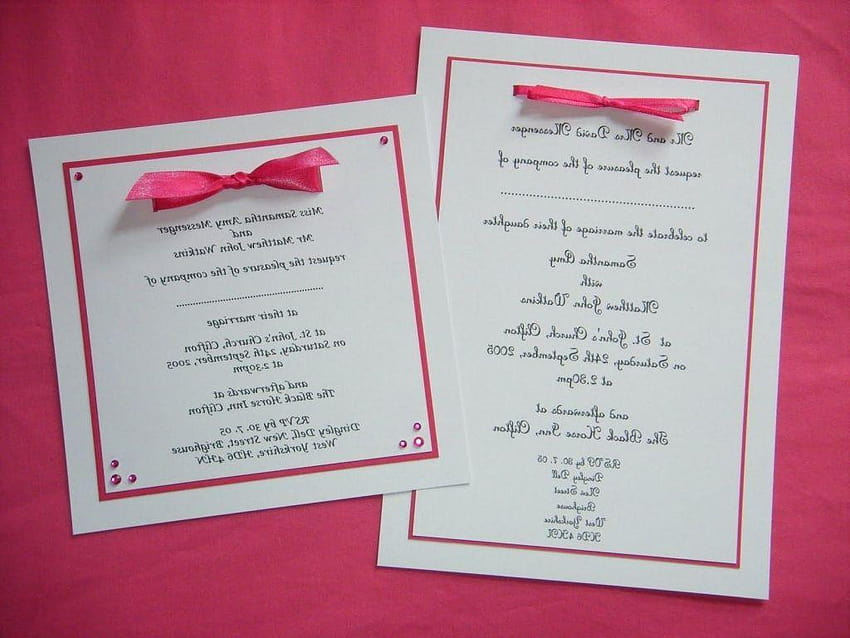 Miss Samantha Amy Messenger
and
Mr Matthew John Watkins
request the pleasure of the company of
........................................
at their marriage
at St. John's Church, Clifton
on Saturday, 24th September, 2005
at 2.30pm
and afterwards at
The Black Horse Inn, Clifton
RSVP by 30. 7. 05
Dingley Dell, New Street, Brighouse
West Yorkshire, HD6 4HN
Mr and Mrs David Messenger
request the pleasure of the company of
........................................
to celebrate the marriage of their daughter
Samantha Amy
with
Matthew John Watkins
at St. John's Church, Clifton
on Saturday, 24th September, 2005
at 2.30pm
and afterwards at
The Black Horse Inn, Clifton
RSVP by 30. 7. 05
Dingley Dell
New Street
Brighouse
West Yorkshire
HD6 4HN